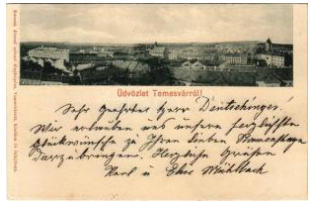 Üdvözlet Temesvárról!
Sehr Geehrter Herr Deutschinger!
Wir erlauben uns unsere herzlichste
Glückwünsche zu Ihrem lieben Namenstage
Darzubringen. Herzliche Grüsse
Karl u